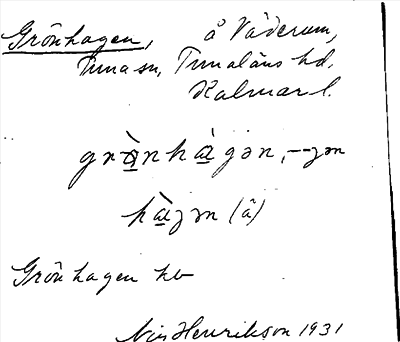 Grönhagen, å Väderum,
Tuna sn, Tunaläns hd.
Kalmar l.
grö̀nhàgən, --ʒən
hàʒən (â)
Grönhagen hb
Nils Henrikson 1931